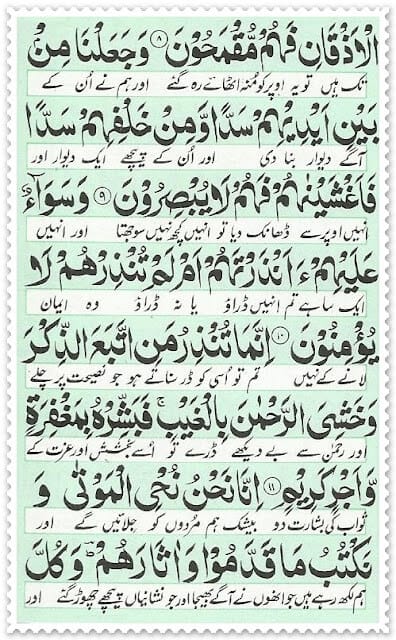 الْاَذْقَانِ فَهُمْ مُّقْمَحُوْنَ ۝۸ وَجَعَلْنَا مِنْۢ
تک ہیں تو یہ اوپر کو مُنہ اٹھائے رہ گئے اور ہم نے اُن کے
بَيْنِ اَيْدِيْهِمْ سَدًّا وَّمِنْ خَلْفِهِمْ سَدًّا
آگے دیوار بنا دی اور اُن کے پیچھے ایک دیوار اور
فَاَغْشَيْنٰهُمْ فَهُمْ لَا يُبْصِرُوْنَ ۝۹ وَسَوَآءٌ
انہیں اوپر سے ڈھانک دیا تو انہیں کچھ نہیں سوجھتا اور انہیں
عَلَيْهِمْ ءَاَنْذَرْتَهُمْ اَمْ لَمْ تُنْذِرْهُمْ لَا
ایک سا ہے تم انہیں ڈراؤ یا نہ ڈراؤ وہ ایمان
يُؤْمِنُوْنَ ۝۱۰ اِنَّمَا تُنْذِرُ مَنِ اتَّبَعَ الذِّكْرَ
لانے کے نہیں تم تو اُسی کو ڈر سناتے ہو جو نصیحت پر چلے
وَخَشِيَ الرَّحْمٰنَ بِالْغَيْبِ ۚ فَبَشِّرْهُ بِمَغْفِرَةٍ
اور رحمٰن سے بے دیکھے ڈرے تو اُسے بخشش اور عزت کے
وَّاَجْرٍ كَرِيْمٍ ۝۱۱ اِنَّا نَحْنُ نُحْيِ الْمَوْتٰى وَ
ثواب کی بشارت دو بیشک ہم مُردوں کو جِلائیں گے اور
نَكْتُبُ مَا قَدَّمُوْا وَاٰثَارَهُمْ ؕ وَكُلَّ
ہم لکھ رہے ہیں جو انھوں نے آگے بھیجا اور جو نشانیاں پیچھے چھوڑ گئے اور